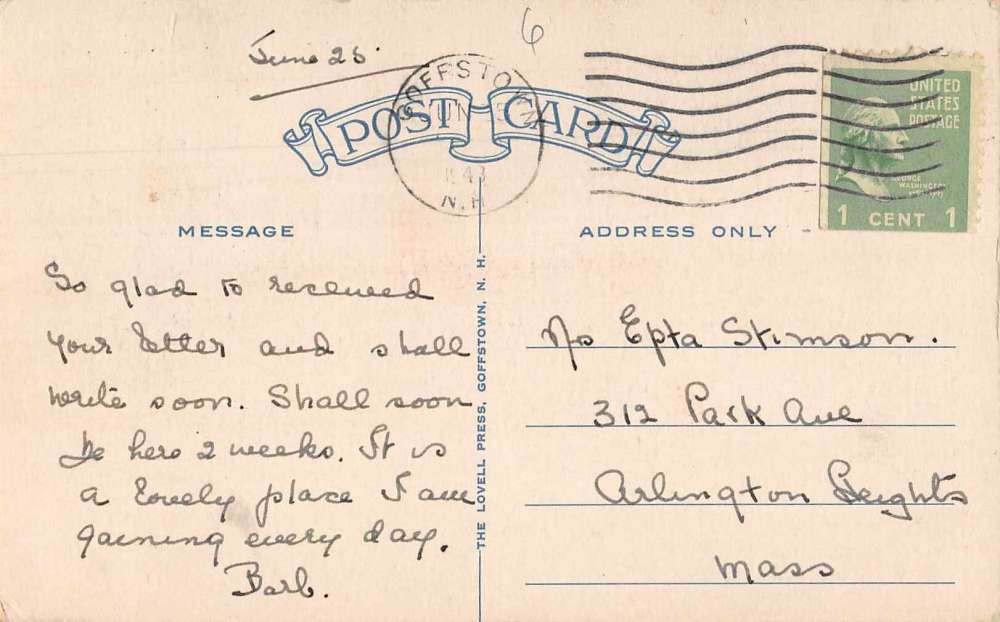 6
June 25
GOFFSTOWN
JUN
1943
N.H.
POST CARD
UNITED
STATES
POSTAGE
GEORGE
WASHINGTON
1 CENT 1
MESSAGE
ADDRESS ONLY
So glad to received
your letter and shall
write soon. Shall soon
be here 2 weeks. It is
a lovely place I am
gaining every day.
Barb.
THE LOVELL PRESS, GOFFSTOWN, N. H.
Epta Stimson.
312 Park Ave
Arlington Heights
Mass